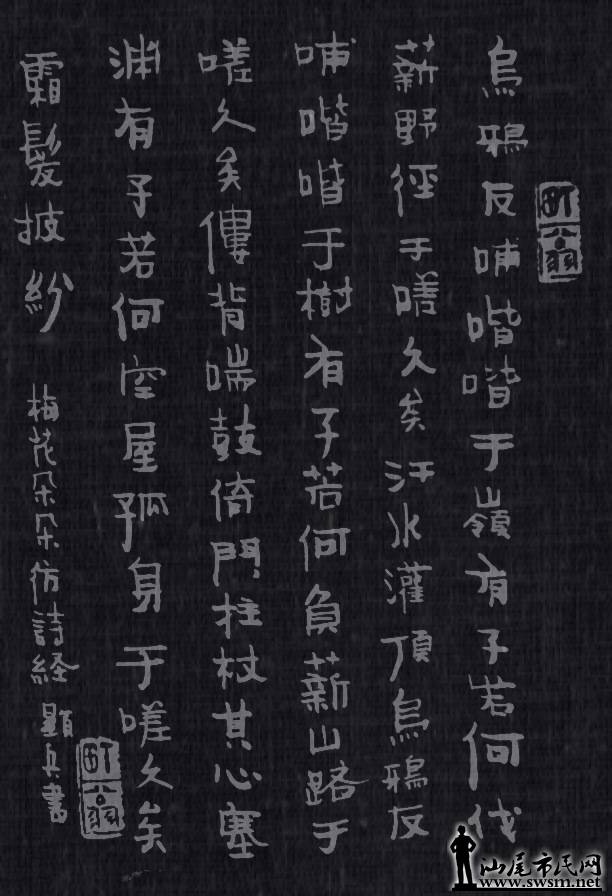 町翁
烏鴉反哺喈喈于嶺有子若何伐
薪野徑于嗟久矣汗水灌頂烏鴉反
哺喈喈于樹有子若何負薪山路于
嗟久矣僂背喘鼓倚門柱杖其心塞
淵有子若何空屋孤身于嗟久矣
霜髮披紛
梅花朵朵仿詩経 顯兵書
町翁
汕尾市民网
www.swsm.net